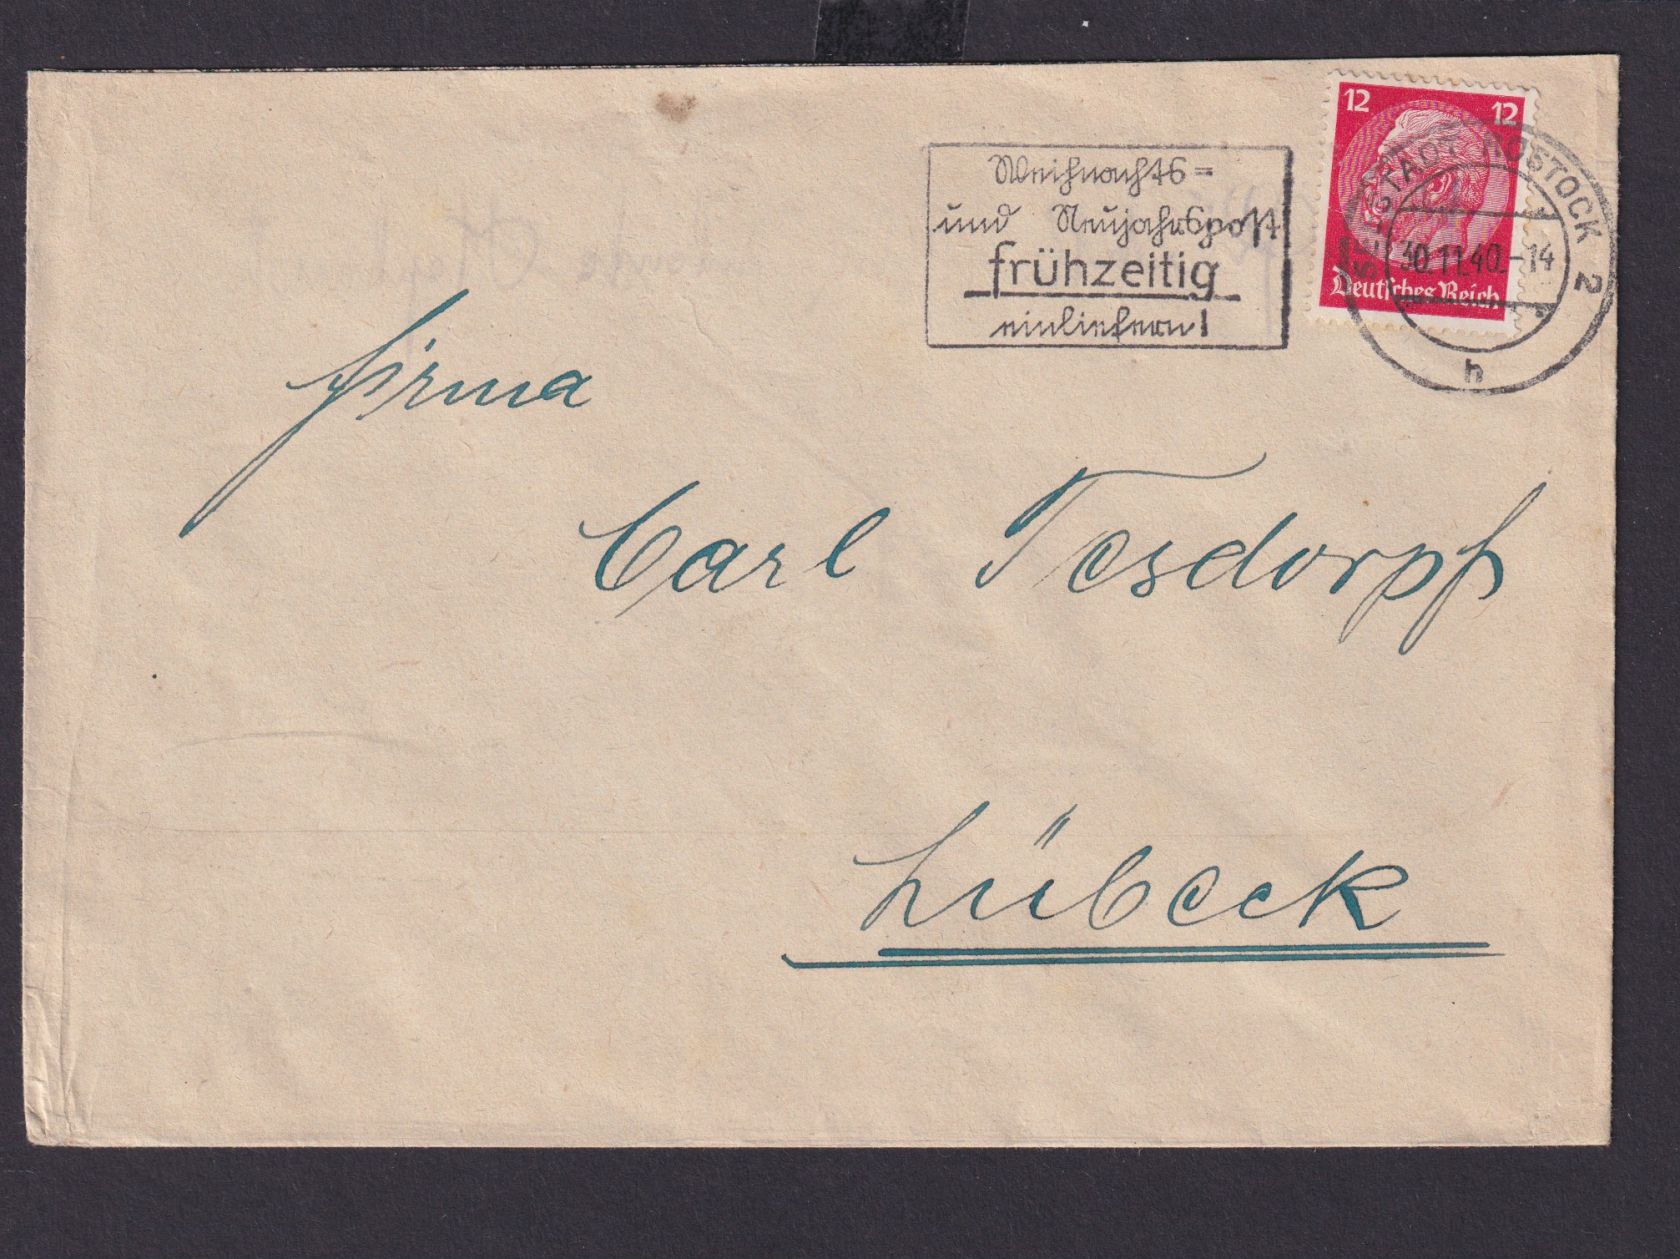 12 12
Deutsches Reich
SEESTADT ROSTOCK 2
30.11.40.-14
h
Weihnachts=
und Neujahrspost
frühzeitig
einliefern!
Firma
Carl Tesdorpf
Lübeck